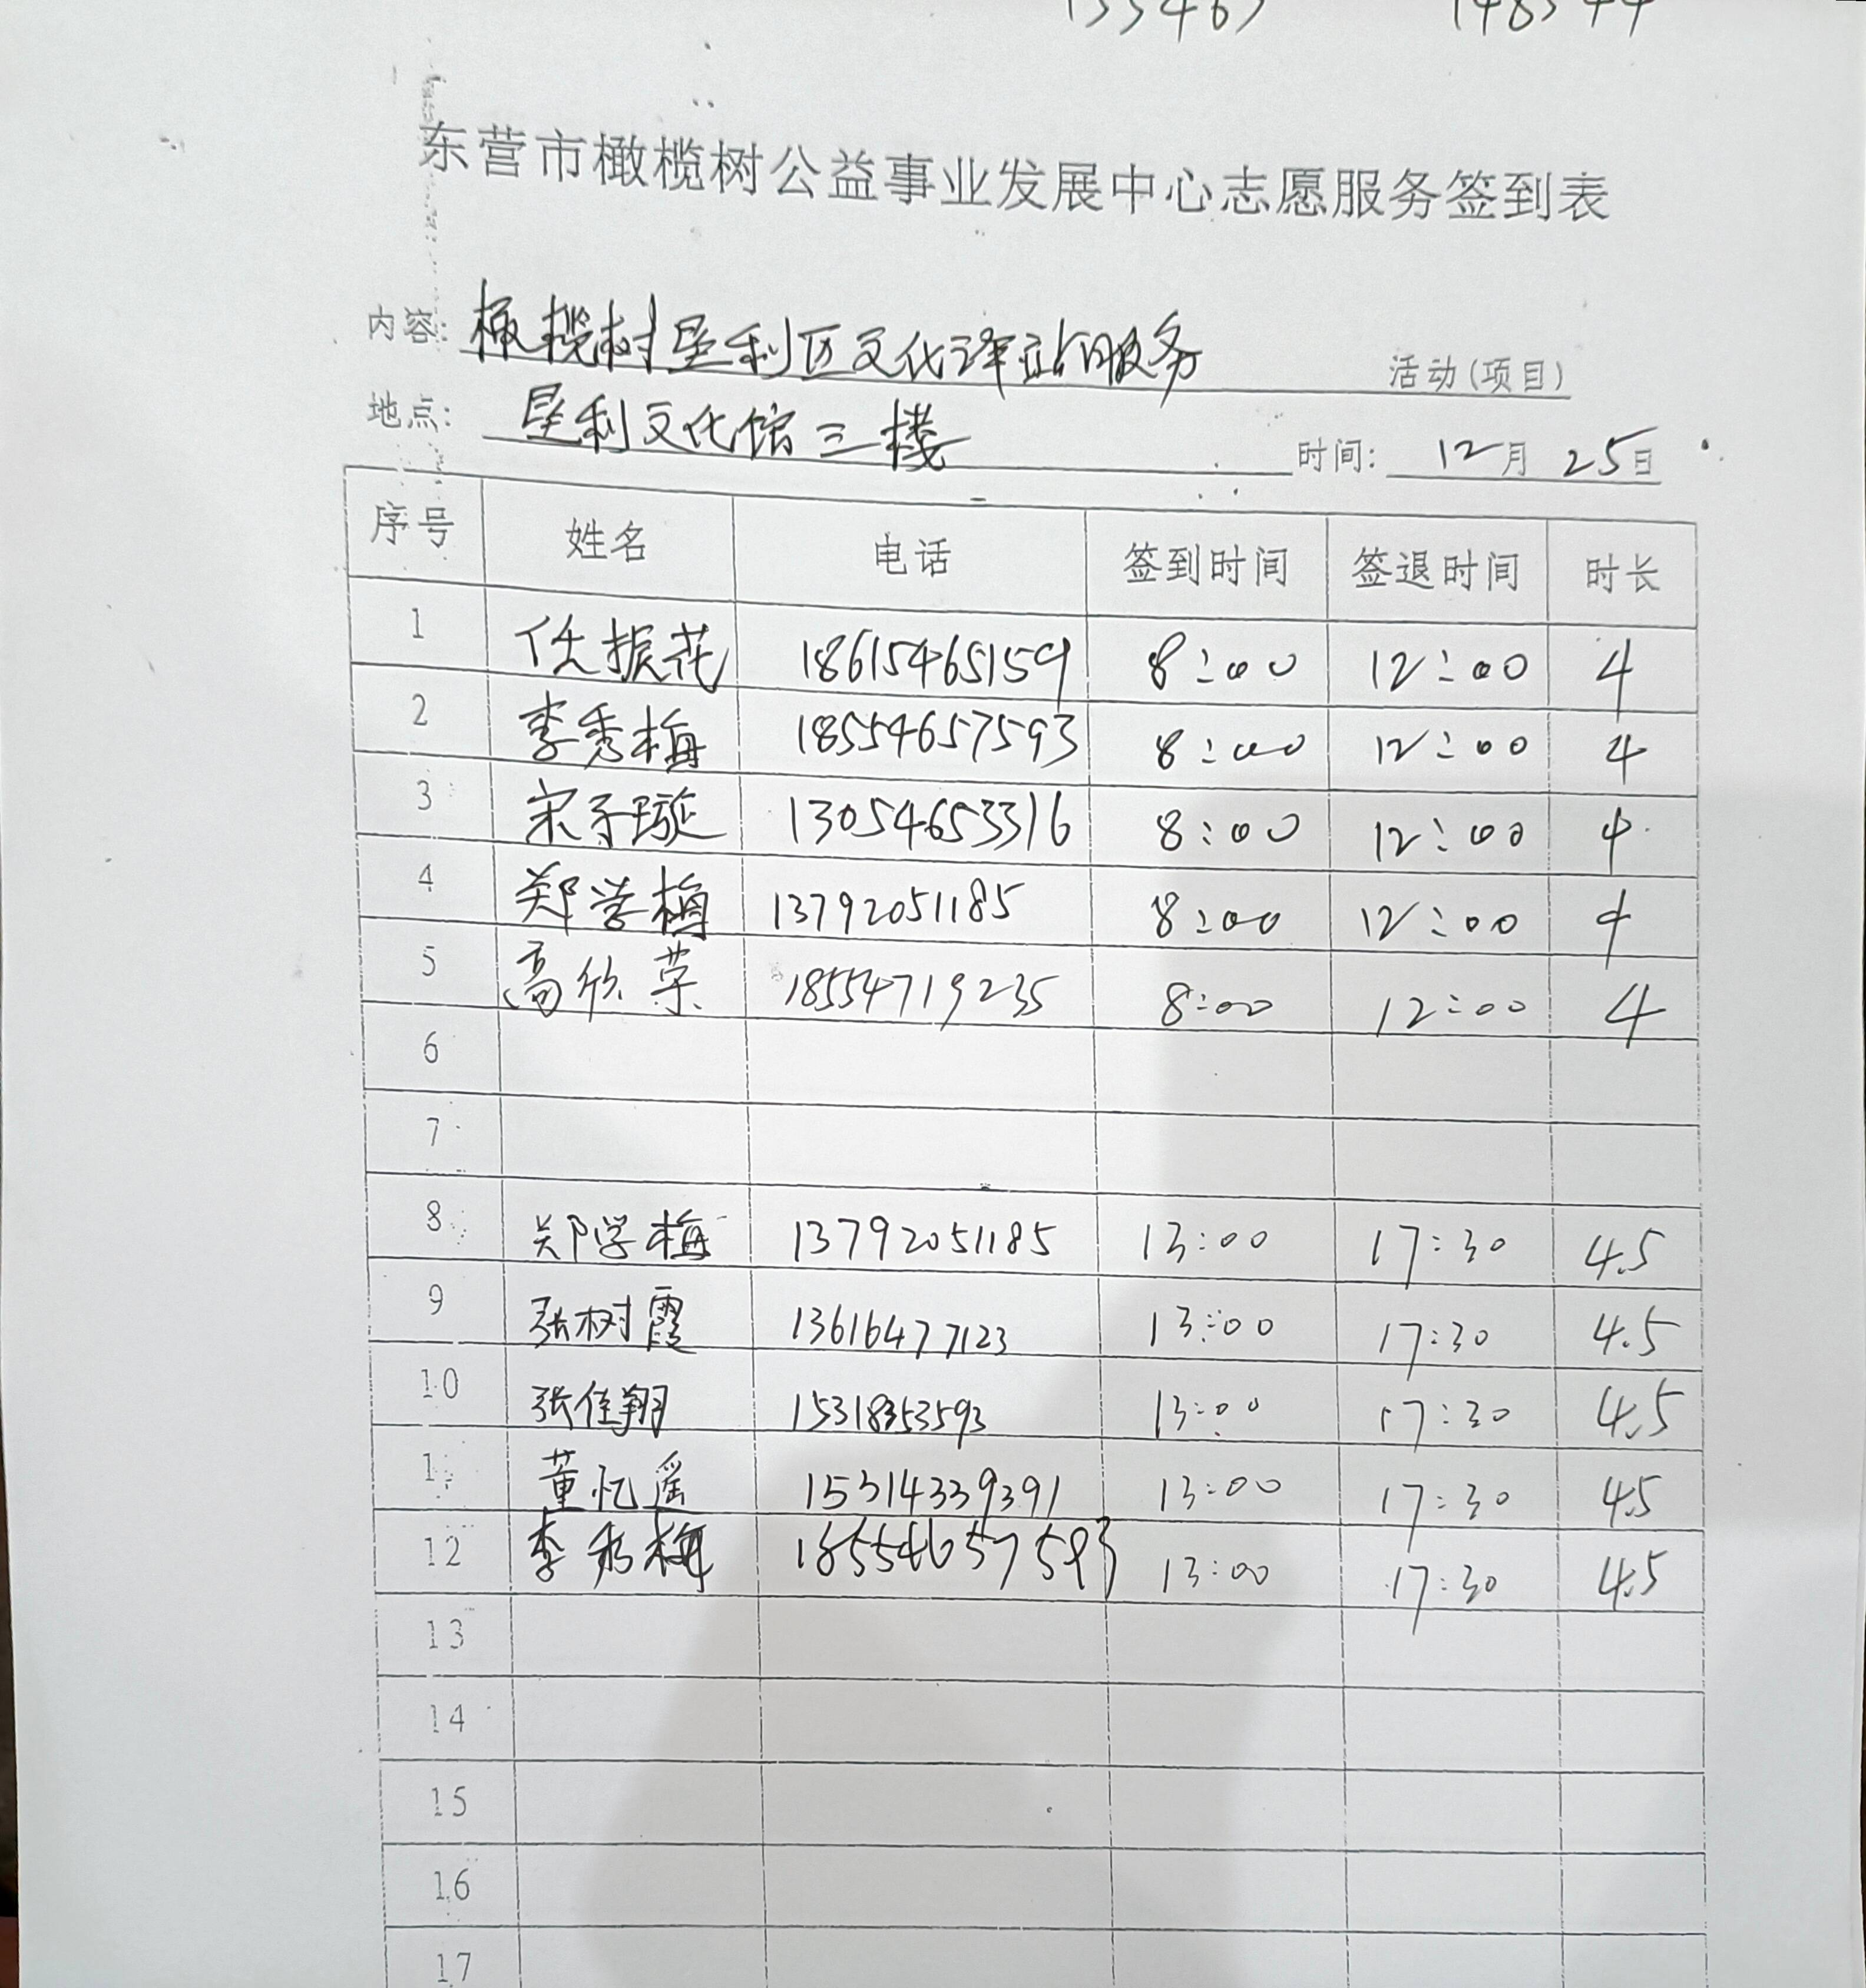 东营市橄榄树公益事业发展中心志愿服务签到表
内容: 橄榄树垦利区文化驿站服务 活动(项目)
地点: 垦利文化馆三楼 时间: 12月25日
序号 姓名 电话 签到时间 签退时间 时长
1 任振花 18615465159 8:00 12:00 4
2 李秀梅 18554657593 8:00 12:00 4
3 宋子璇 13054653316 8:00 12:00 4
4 郑学梅 13792051185 8:00 12:00 4
5 高欣荣 18554719235 8:00 12:00 4
6
7
8 郑学梅 13792051185 13:00 17:30 4.5
9 张树霞 13616477123 13:00 17:30 4.5
10 张佳翔 15318353593 13:00 17:30 4.5
1 董忆遥 15314339391 13:00 17:30 4.5
12 李秀梅 18554657593 13:00 17:30 4.5
13
14
15
16
17